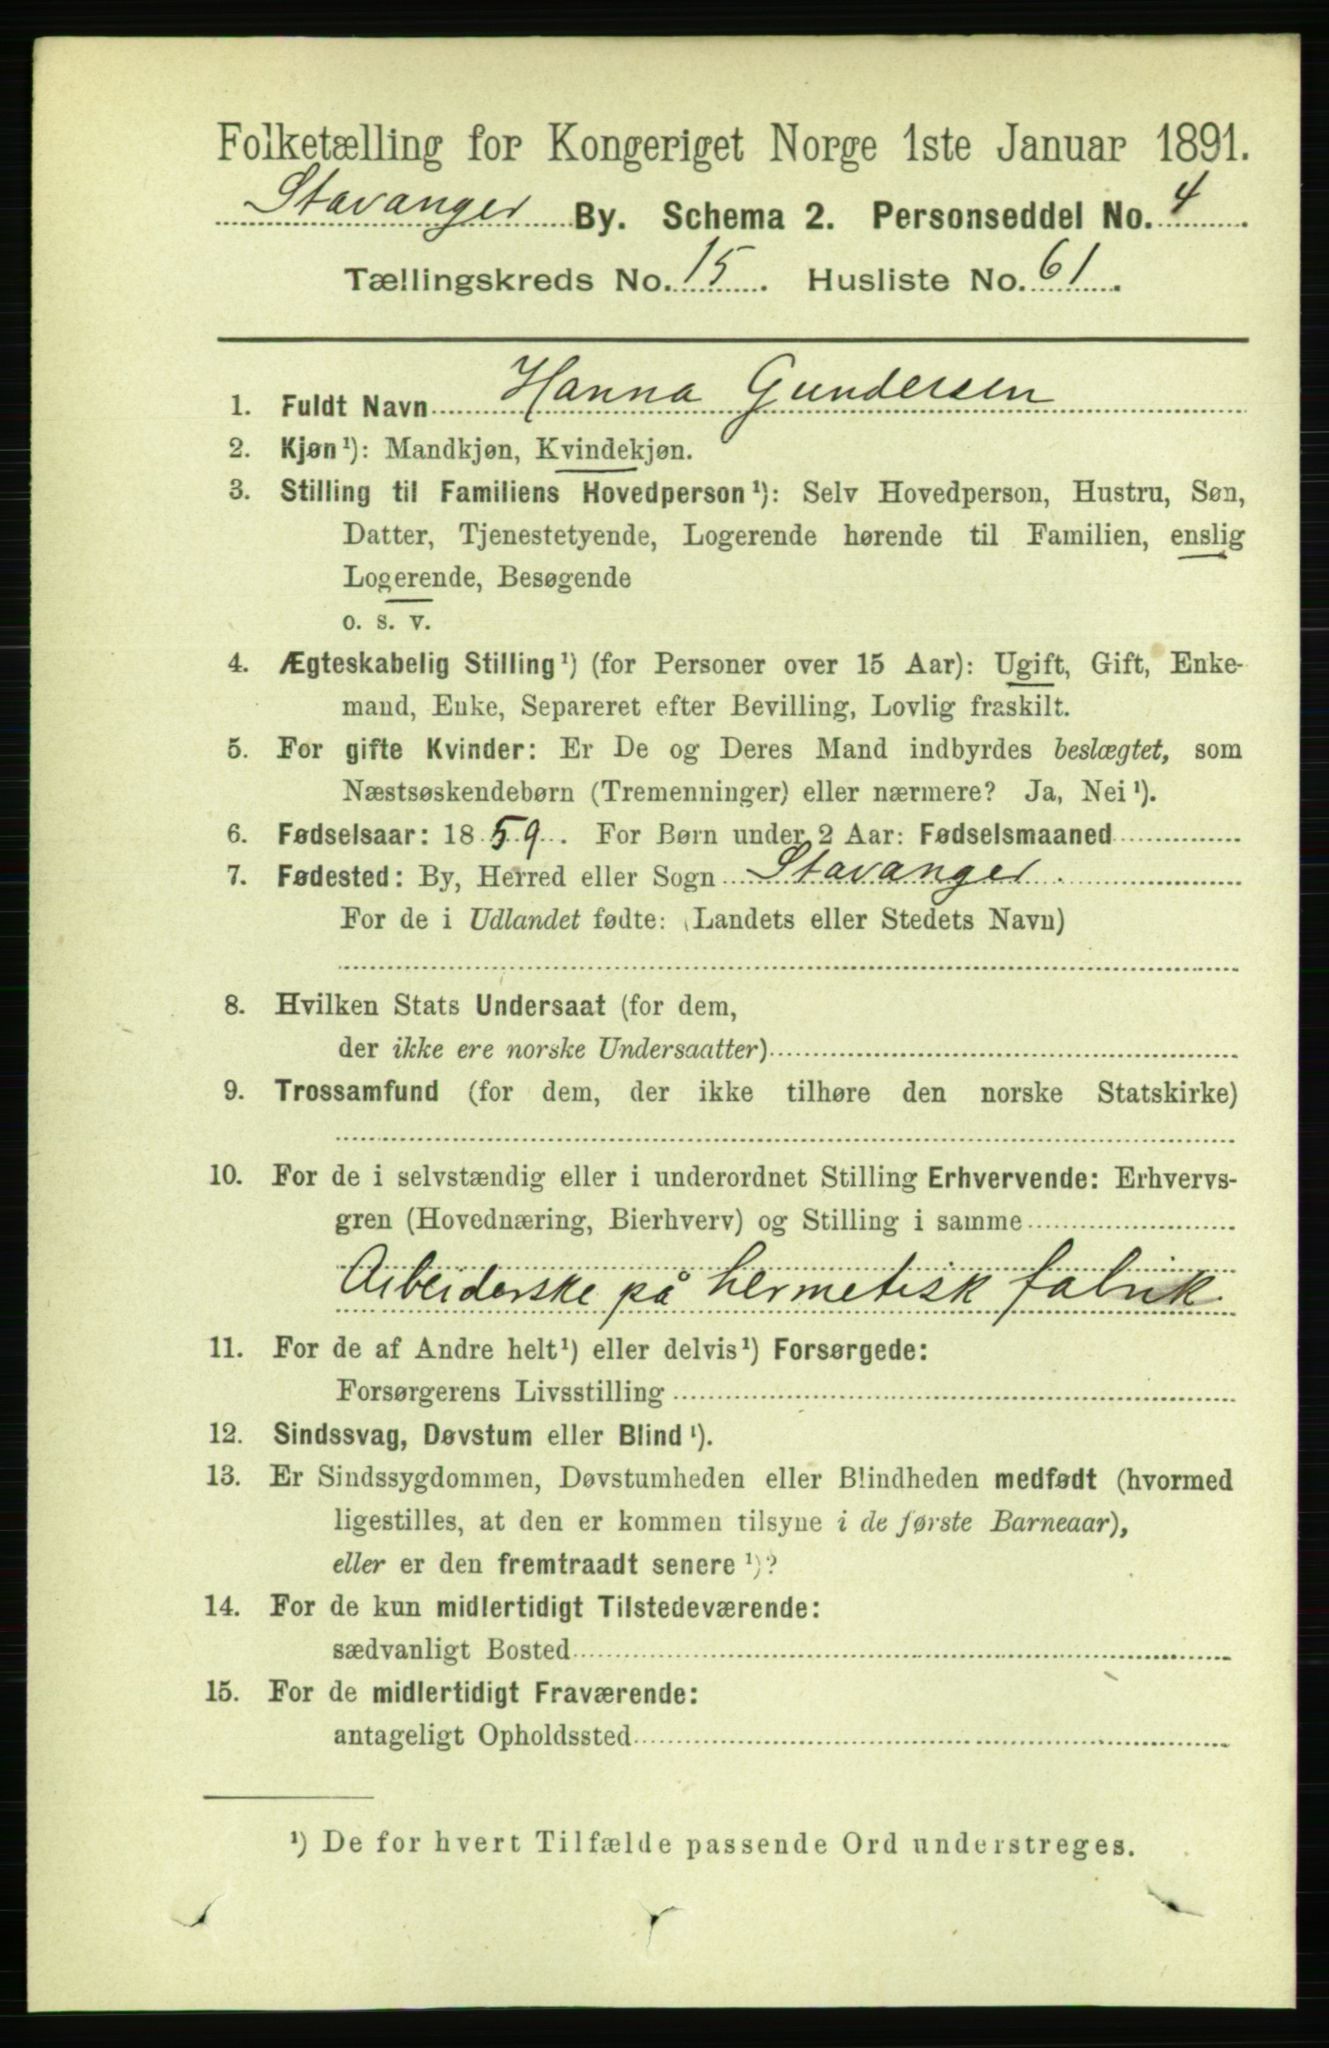 Folketælling for Kongeriget Norge 1ste Januar 1891.
Stavanger By. Schema 2. Personseddel No. 4
Tællingskreds No. 15. Husliste No. 61.
1. Fuldt Navn Hanna Gundersen
2. Kjøn¹): Mandkjøn, Kvindekjøn.
3. Stilling til Familiens Hovedperson¹): Selv Hovedperson, Hustru, Søn,
Datter, Tjenestetyende, Logerende hørende til Familien, enslig
Logerende, Besøgende
o. s. v.
4. Ægteskabelig Stilling¹) (for Personer over 15 Aar): Ugift, Gift, Enke-
mand, Enke, Separeret efter Bevilling, Lovlig fraskilt.
5. For gifte Kvinder: Er De og Deres Mand indbyrdes beslægtet, som
Næstsøskendebørn (Tremenninger) eller nærmere? Ja, Nei¹).
6. Fødselsaar: 1859. For Børn under 2 Aar: Fødselsmaaned
7. Fødested: By, Herred eller Sogn Stavanger.
For de i Udlandet fødte: (Landets eller Stedets Navn)
8. Hvilken Stats Undersaat (for dem,
der ikke ere norske Undersaatter)
9. Trossamfund (for dem, der ikke tilhøre den norske Statskirke)
10. For de i selvstændig eller i underordnet Stilling Erhvervende: Erhvervs-
gren (Hovednæring, Bierhverv) og Stilling i samme
Arbeiderske på hermetisk fabrik
11. For de af Andre helt¹) eller delvis¹) Forsørgede:
Forsørgerens Livsstilling
12. Sindssvag, Døvstum eller Blind¹).
13. Er Sindssygdommen, Døvstumheden eller Blindheden medfødt (hvormed
ligestilles, at den er kommen tilsyne i de første Barneaar),
eller er den fremtraadt senere¹)?
14. For de kun midlertidigt Tilstedeværende:
sædvanligt Bosted
15. For de midlertidigt Fraværende:
antageligt Opholdssted
¹) De for hvert Tilfælde passende Ord understreges.